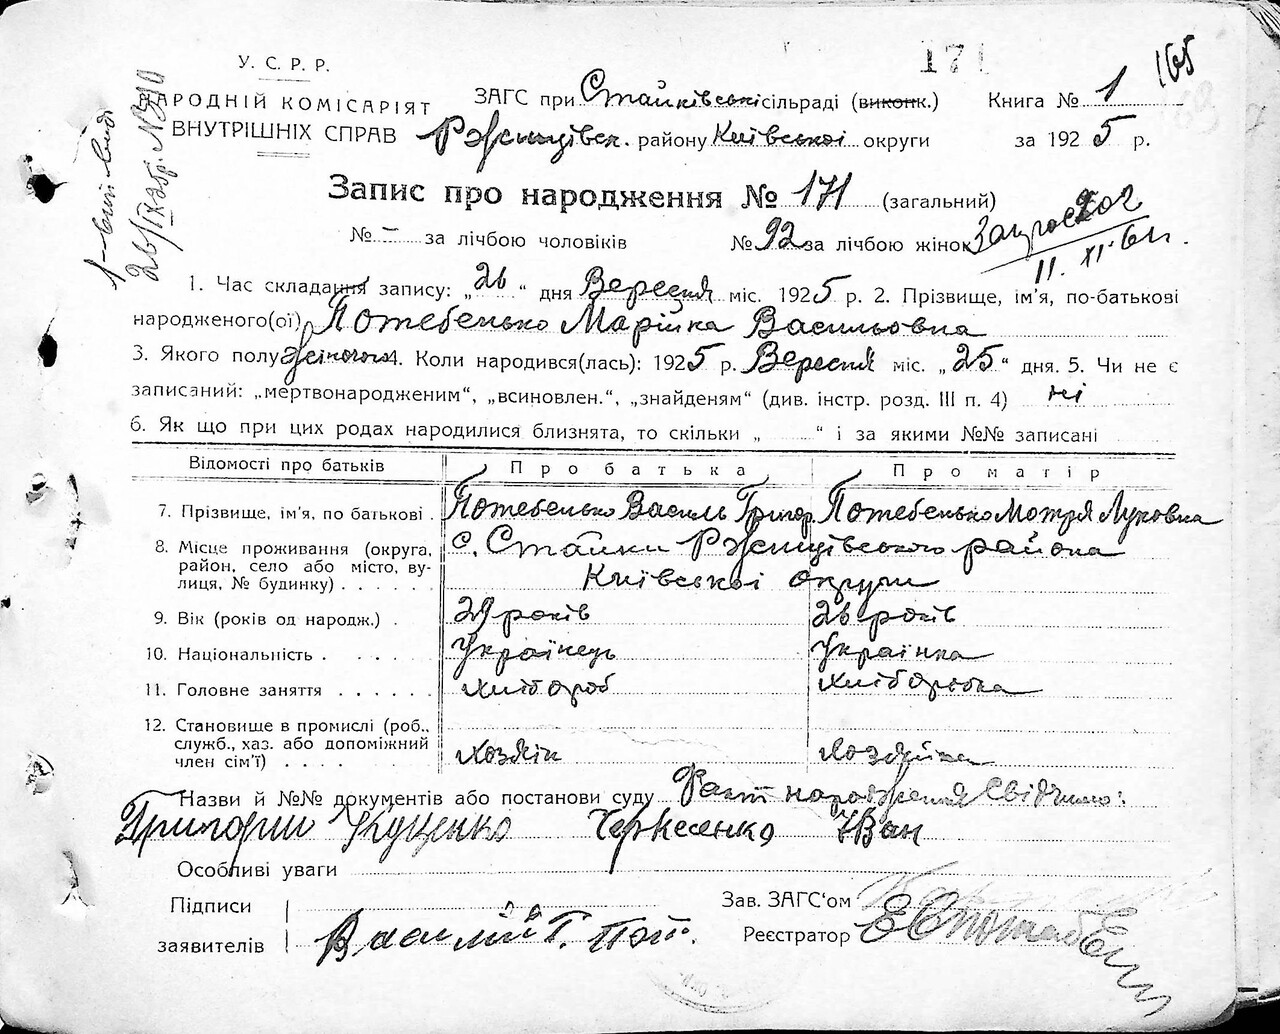 171
165
У. С. Р. Р.
НАРОДНІЙ КОМІСАРІЯТ
ВНУТРІШНІХ СПРАВ
ЗАГС при Стайківські сільраді (виконк.) Книга № 1
Ржищівськ. району Київської округи за 1925 р.
Запис про народження № 171 (загальний)
№ – за лічбою чоловіків № 92 за лічбою жінок
11. XI. 61 г.
1. Час складання запису: „26“ дня Вересня міс. 1925 р. 2. Прізвище, ім'я, по-батькові
народженого(ої) Потебенько Марійка Васильовна
3. Якого полу жіночого 4. Коли народився(лась): 1925 р. Вересня міс. „25“ дня. 5. Чи не є
записаний: „мертвонародженим“, „всиновлен.“, „знайденям“ (див. інстр. розд. III п. 4) ні
6. Як що при цих родах народилися близнята, то скільки „ “ і за якими №№ записані
Відомості про батьків Про батька Про матір
7. Прізвище, ім'я, по батькові . Потебенько Василь Григор. Потебенько Мотря Луковна
8. Місце проживання (округа, с. Стайки Ржищівського района
район, село або місто, ву-
лиця, № будинку) . . . . . Київської округи
9. Вік (років од народж.) . 29 років 26 років
10. Національність . . . . . Українець Українка
11. Головне заняття . . . . . . хлібороб хліборобка
12. Становище в промислі (роб.,
служб., хаз. або допоміжний
член сім'ї) . . . . хозяїн хозяйка
Назви й №№ документів або постанови суду Факт народження свідчимо:
Григорий Куценко Черкесенко Іван
Особливі уваги
Підписи Зав. ЗАГС'ом
заявителів Василій Г. Пот. Реєстратор